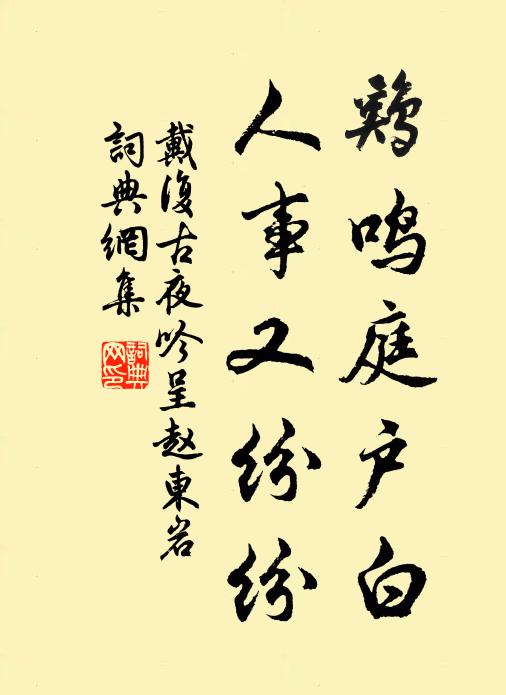 鷄鳴庭户白
人事又紛紛
戴復古夜吟呈赵東岩
詞典網集
詞典
网印